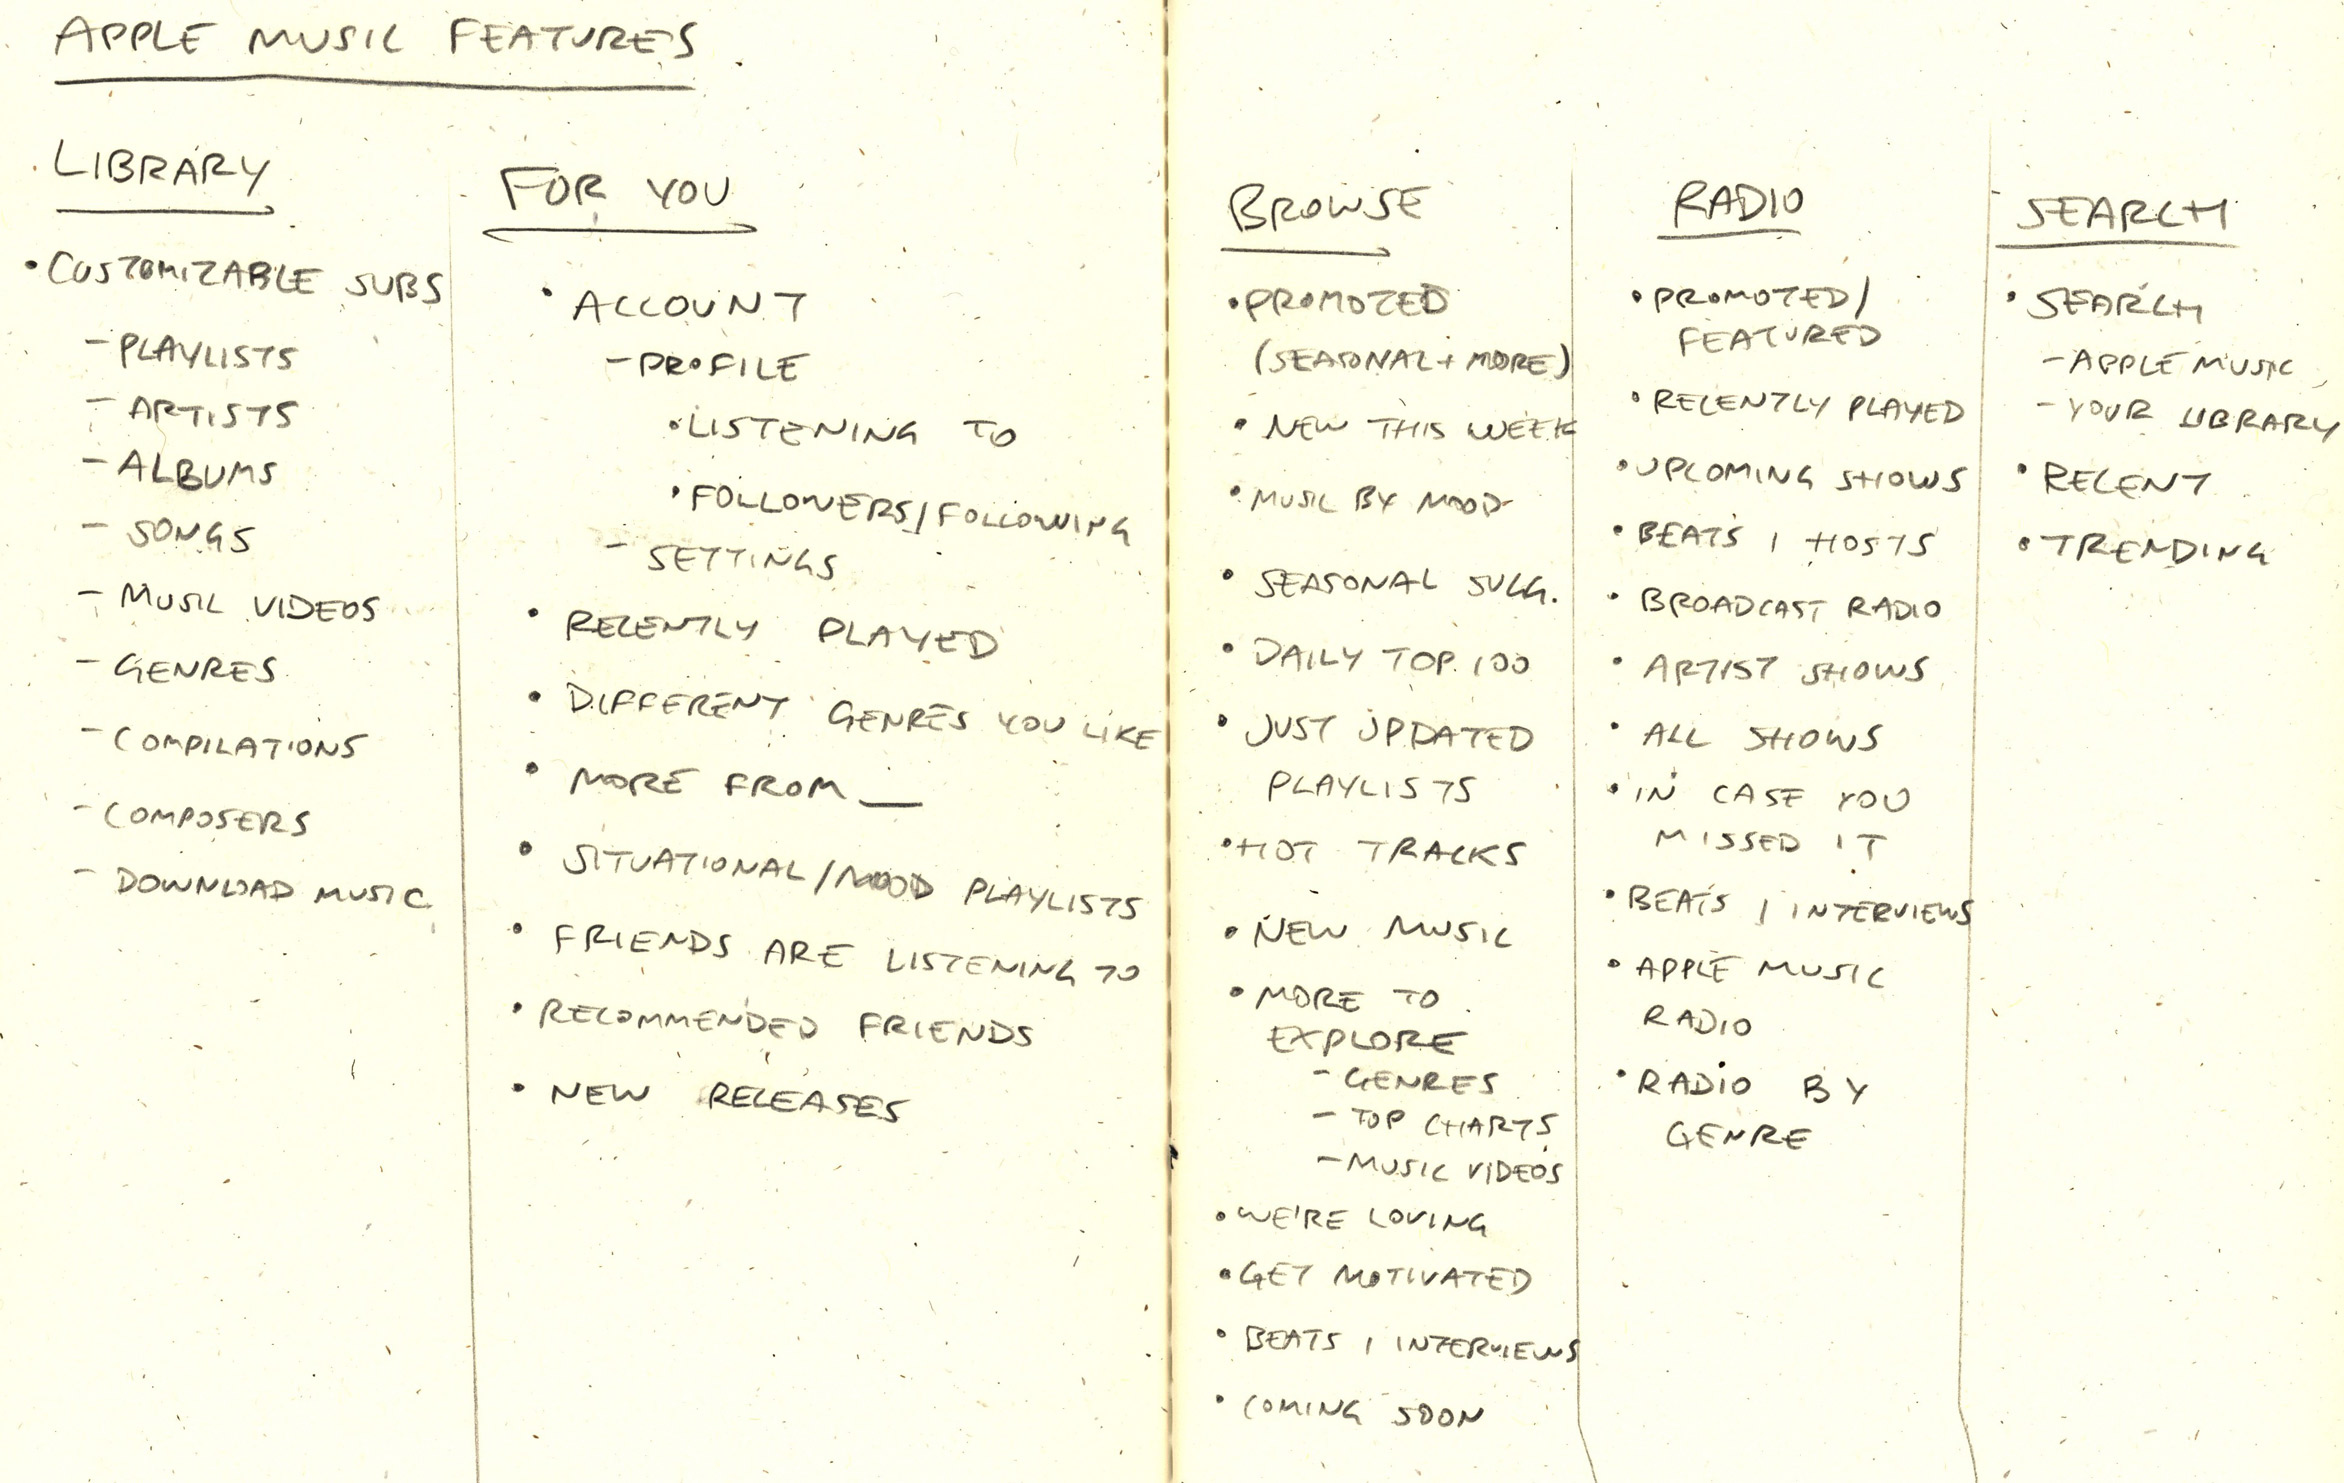 APPLE MUSIC FEATURES
LIBRARY
• CUSTOMIZABLE SUBS
- PLAYLISTS
- ARTISTS
- ALBUMS
- SONGS
- MUSIC VIDEOS
- GENRES
- COMPILATIONS
- COMPOSERS
- DOWNLOAD MUSIC
FOR YOU
• ACCOUNT
- PROFILE
• LISTENING TO
• FOLLOWERS/FOLLOWING
- SETTINGS
• RECENTLY PLAYED
• DIFFERENT GENRES YOU LIKE
• MORE FROM __
• SITUATIONAL/MOOD PLAYLISTS
• FRIENDS ARE LISTENING TO
• RECOMMENDED FRIENDS
• NEW RELEASES
BROWSE
• PROMOTED
(SEASONAL + MORE)
• NEW THIS WEEK
• MUSIC BY MOOD
• SEASONAL SUGG.
• DAILY TOP 100
• JUST UPDATED
PLAYLISTS
• HOT TRACKS
• NEW MUSIC
• MORE TO
EXPLORE
- GENRES
- TOP CHARTS
- MUSIC VIDEOS
• WE'RE LOVING
• GET MOTIVATED
• BEATS 1 INTERVIEWS
• COMING SOON
RADIO
• PROMOTED/
FEATURED
• RECENTLY PLAYED
• UPCOMING SHOWS
• BEATS 1 HOSTS
• BROADCAST RADIO
• ARTIST SHOWS
• ALL SHOWS
• IN CASE YOU
MISSED IT
• BEATS 1 INTERVIEWS
• APPLE MUSIC
RADIO
• RADIO BY
GENRE
SEARCH
• SEARCH
- APPLE MUSIC
- YOUR LIBRARY
• RECENT
• TRENDING